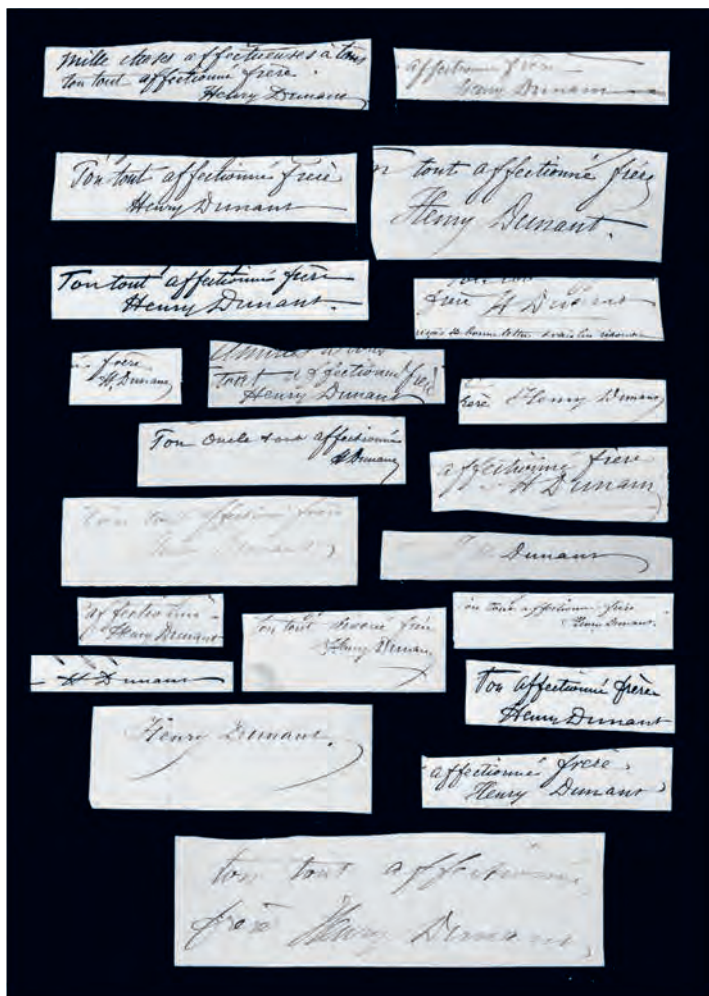 Mille choses affectueuses à tous
ton tout affectionné frère.
Henry Dunant
affectionné frère
Henry Dunant
Ton tout affectionné frère
Henry Dunant
tout affectionné frère
Henry Dunant.
Ton tout affectionné frère
Henry Dunant.
frère H Dunant
frère
H. Dunant
tout affectionné frère
Henry Dunant
frère Henry Dunant
Ton Oncle tout affectionné
H Dunant
affectionné frère
H Dunant
ton tout affectionné frère
Dunant
Dunant
affectionné
Henry Dunant
ton tout affectionné frère
Henry Dunant.
ton tout dévoué frère
Henry Dunant
H Dunant
Ton affectionné frère
Henry Dunant
Henry Dunant.
affectionné frère
Henry Dunant
ton tout affectionné
frère Henry Dunant,